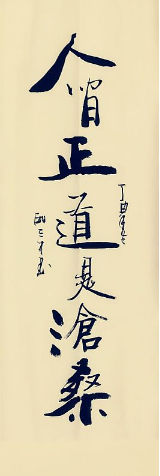 人間正道是滄桑
丁酉